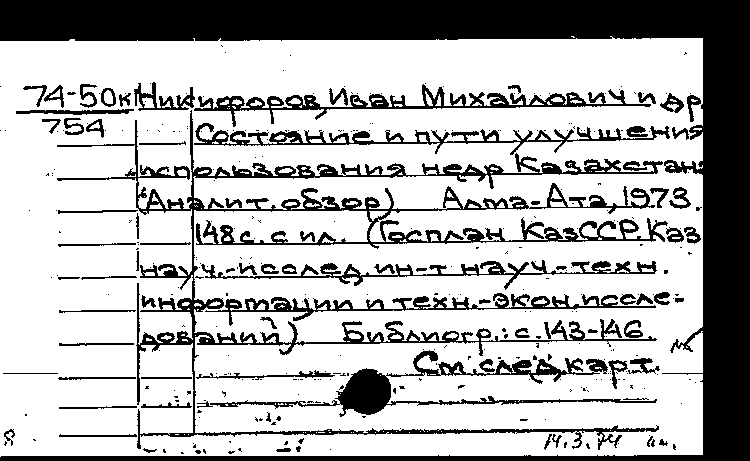 74-50к Никифоров, Иван Михайлович и др.
754
Состояние и пути улучшения
использования недр Казахстана
(Аналит. обзор). Алма-Ата, 1973.
148 с. с ил. (Госплан КазССР. Каз
науч.-исслед. ин-т науч.-техн.
информации и техн.-экон. иссле-
дований). Библиогр.: с. 143-146.
См. след. карт.
8
14.3.74